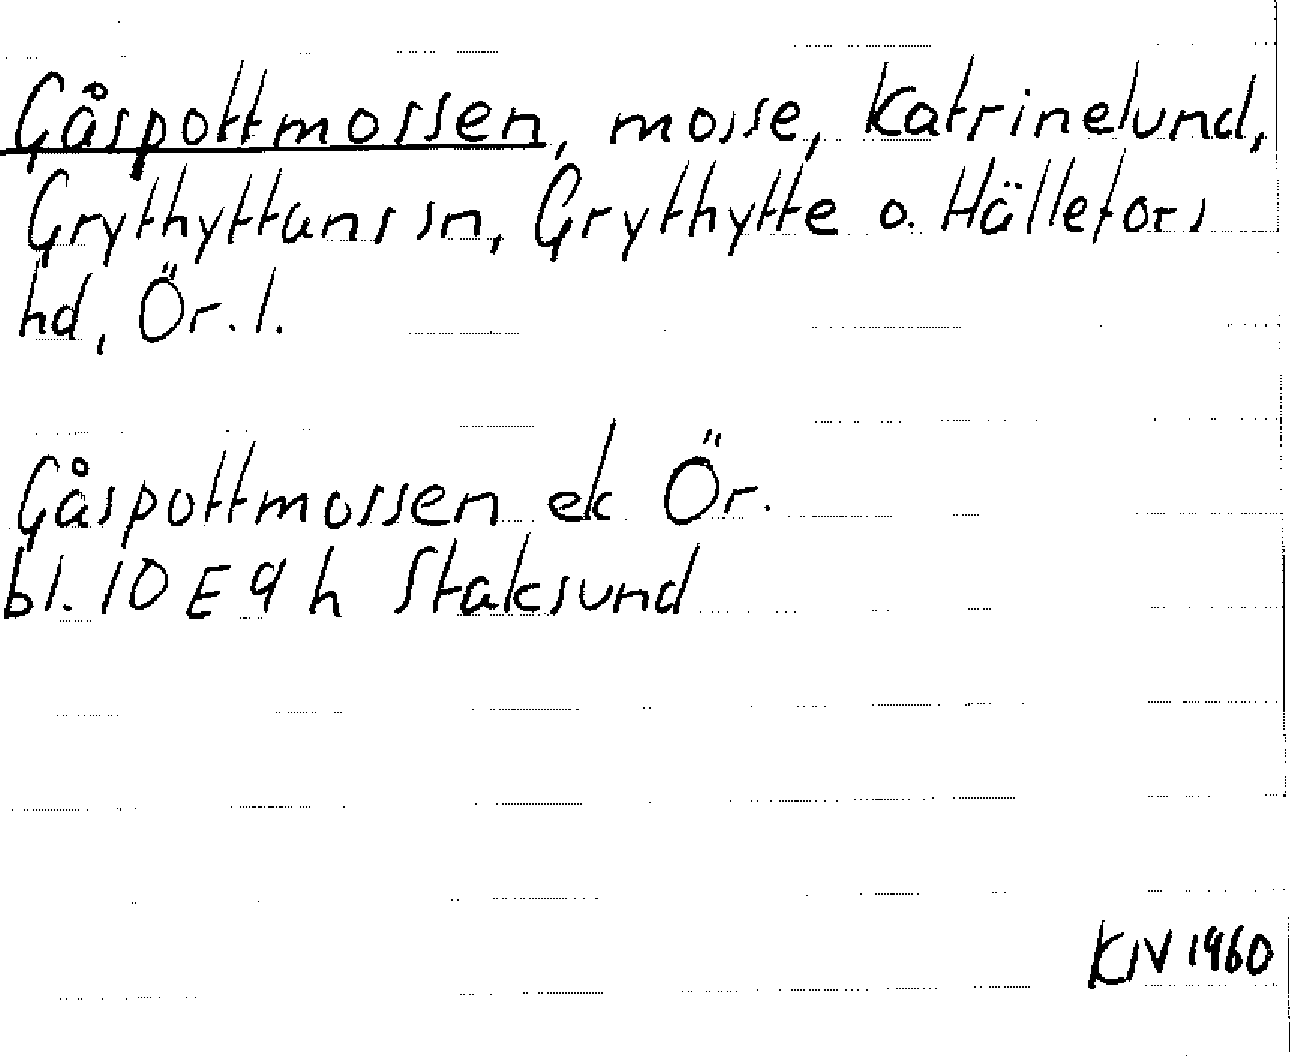 Gåspottmossen, mosse, Katrinelund,
Grythyttans sn, Grythytte o. Hällefors
hd, Ör. l.
Gåspottmossen ek Ör.
bl. 10 E 9 h Staksund
KJV 1960